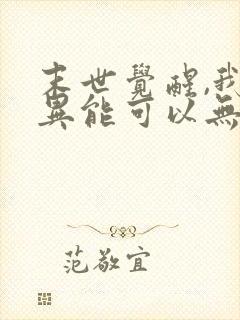 末世覺醒,我
異能可以無
范敬宜